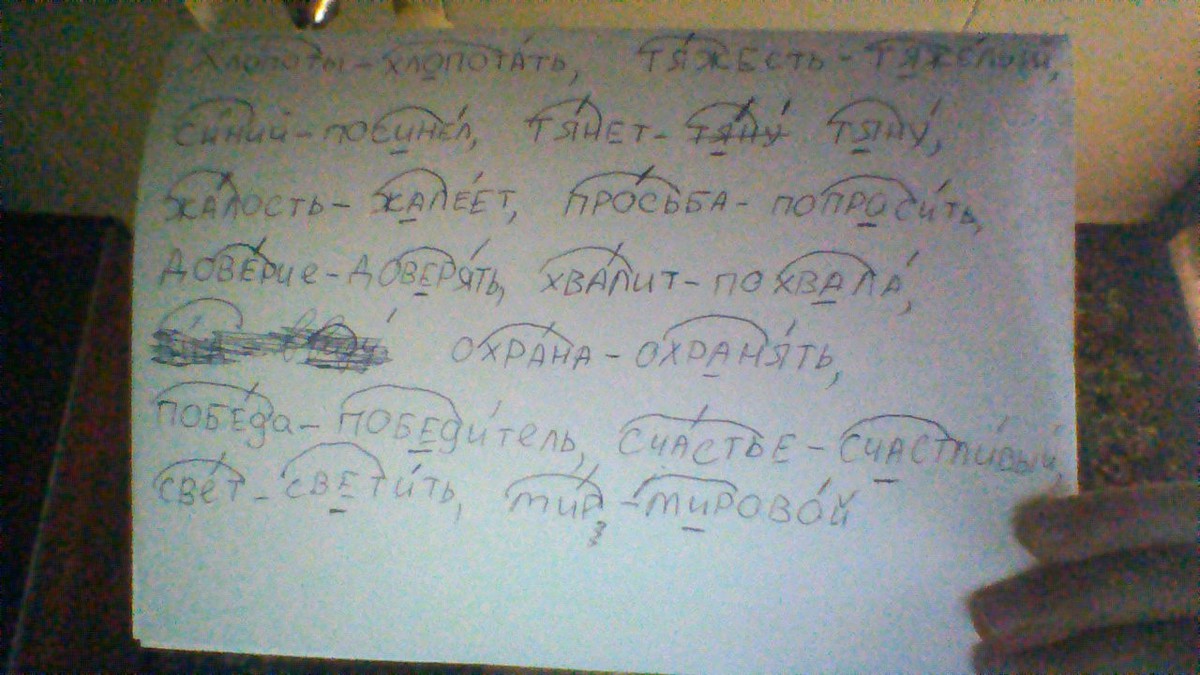 хлопоты - хлопота́ть, тя́жесть - тяжёлый,
си́ний - посине́л, тя́нет - тя́ну́ тяну́,
жа́лость - жале́ет, про́сьба - попроси́ть,
дове́рие - доверя́ть, хва́лит - похвала́,
охра́на - охраня́ть,
побе́да - победи́тель, сча́стье - счастли́вый,
све́т - свети́ть, ми́р - мирово́й